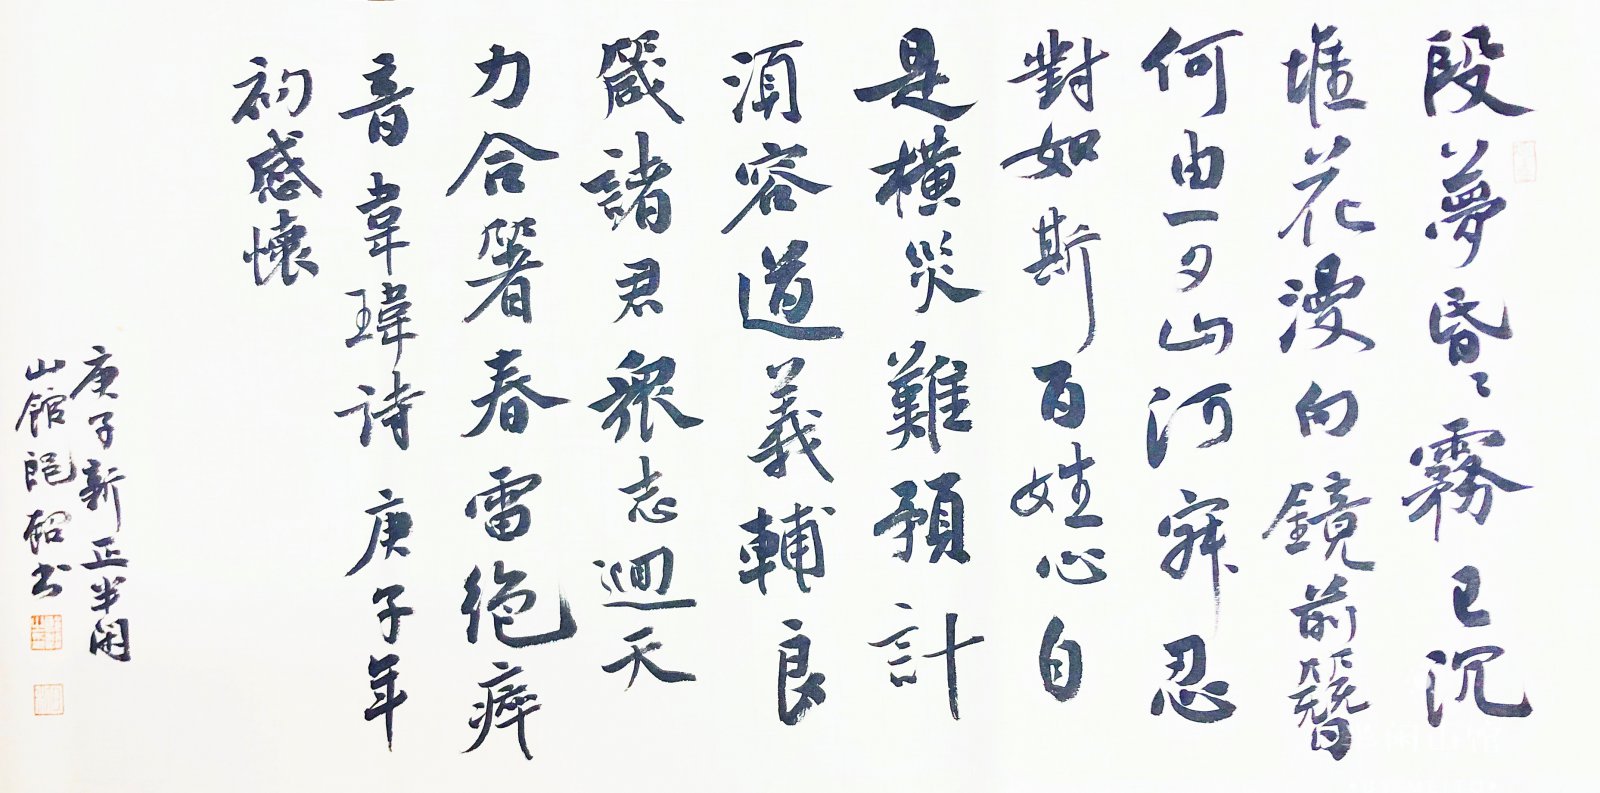 段夢昏〻霧已沉
堆花漫向鏡前簪
何由一夕山河寐忍
對如斯百姓心自
是橫災難預計
須容道義輔良
箴諸君衆志迴天
力合箸春雷絶瘴
音韋瑋詩庚子年
初感懷
庚子新正半閑
山館 韶书
半闲山馆